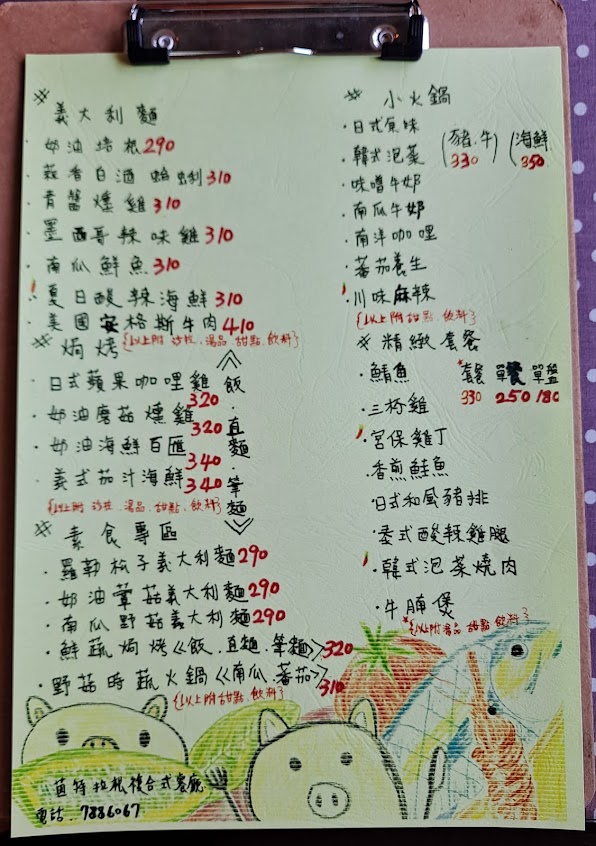 ※
義大利麵
奶油培根290
蒜香白酒蛤蜊310
青醬燻雞310
墨西哥辣味雞310
南瓜鮮魚310
夏日酸辣海鮮310
美國安格斯牛肉410
{以上附沙拉、湯品、甜點、飲料}
※焗烤
《飯.直麵.筆麵》
日式蘋果咖哩雞320
奶油磨菇燻雞320
奶油海鮮百匯340
義式茄汁海鮮340
{以上附沙拉、湯品、甜點、飲料}
※素食專區
羅勒松子義大利麵290
奶油蕈菇義大利麵290
南瓜野菇義大利麵290
鮮蔬焗烤《飯.直麵.筆麵》320
野菇時蔬火鍋《南瓜.蕃茄》310
{以上附甜點.飲料}
※小火鍋
日式原味
韓式泡菜(豬.牛)330(海鮮)350
味噌牛奶
南瓜牛奶
南洋咖哩
蕃茄養生
川味麻辣
{以上附甜點、飲料}
※精緻套餐
鯖魚 *套餐330 單餐250 單盤180
三杯雞
宮保雞丁
香煎鮭魚
日式和風豬排
泰式酸辣雞腿
韓式泡菜燒肉
牛腩煲
*{以上附湯品、甜點、飲料}
茵特拉根複合式客廳
電話.7886067